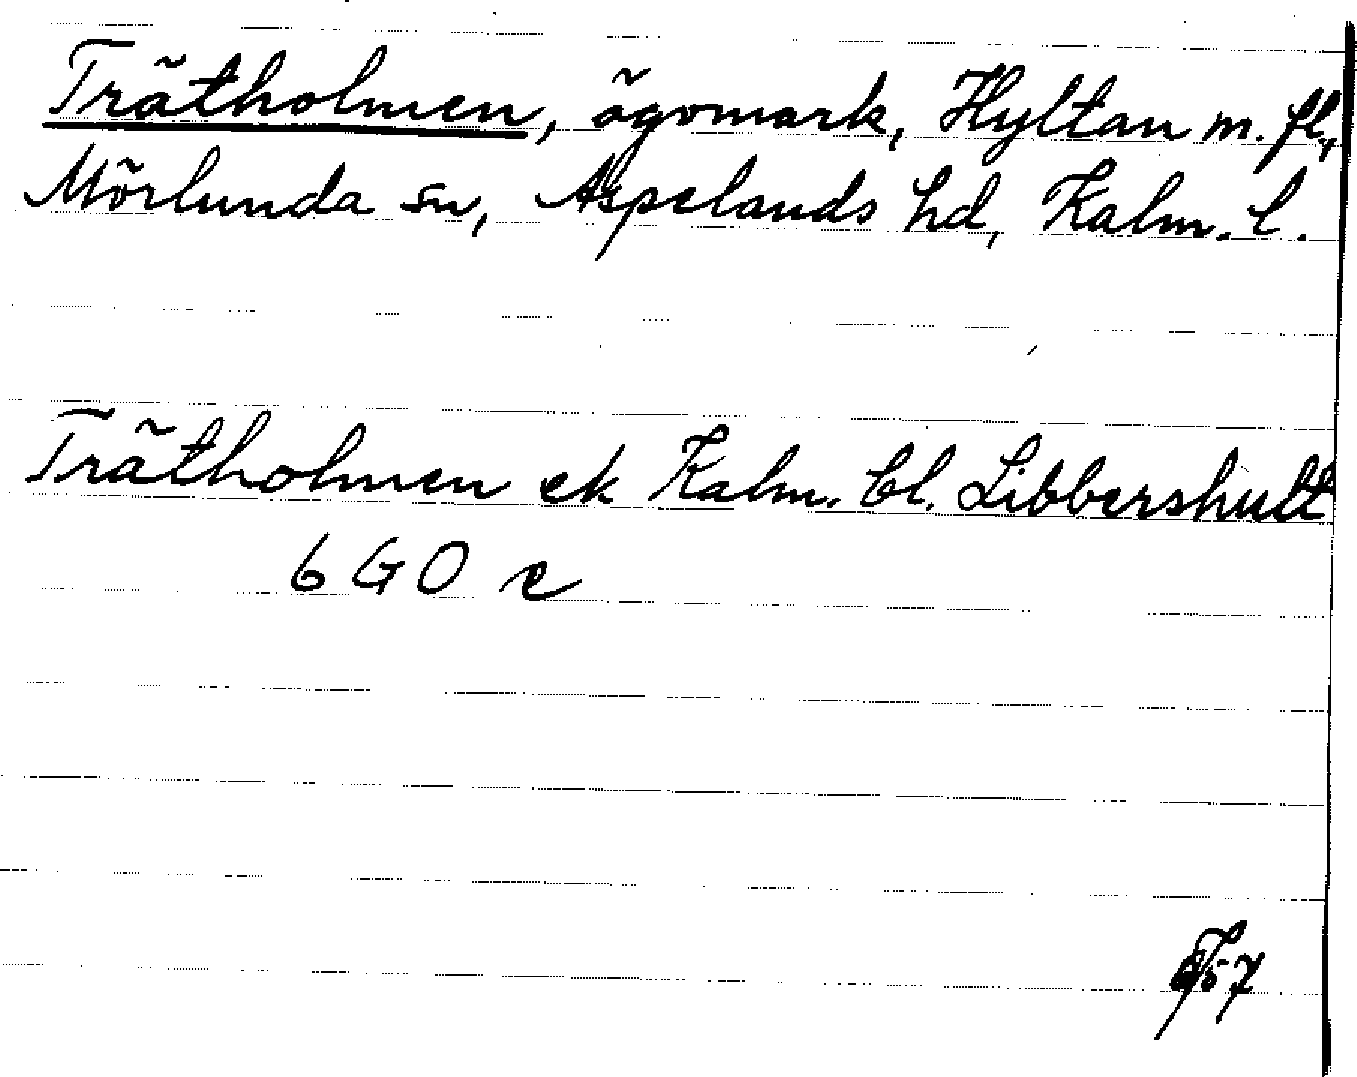 Trätholmen, ägomark, Hyltan m. fl.,
Mörlunda sn, Aspelands hd, Kalm. l.
Trätholmen ek Kalm. bl. Libbershult
6 G O c